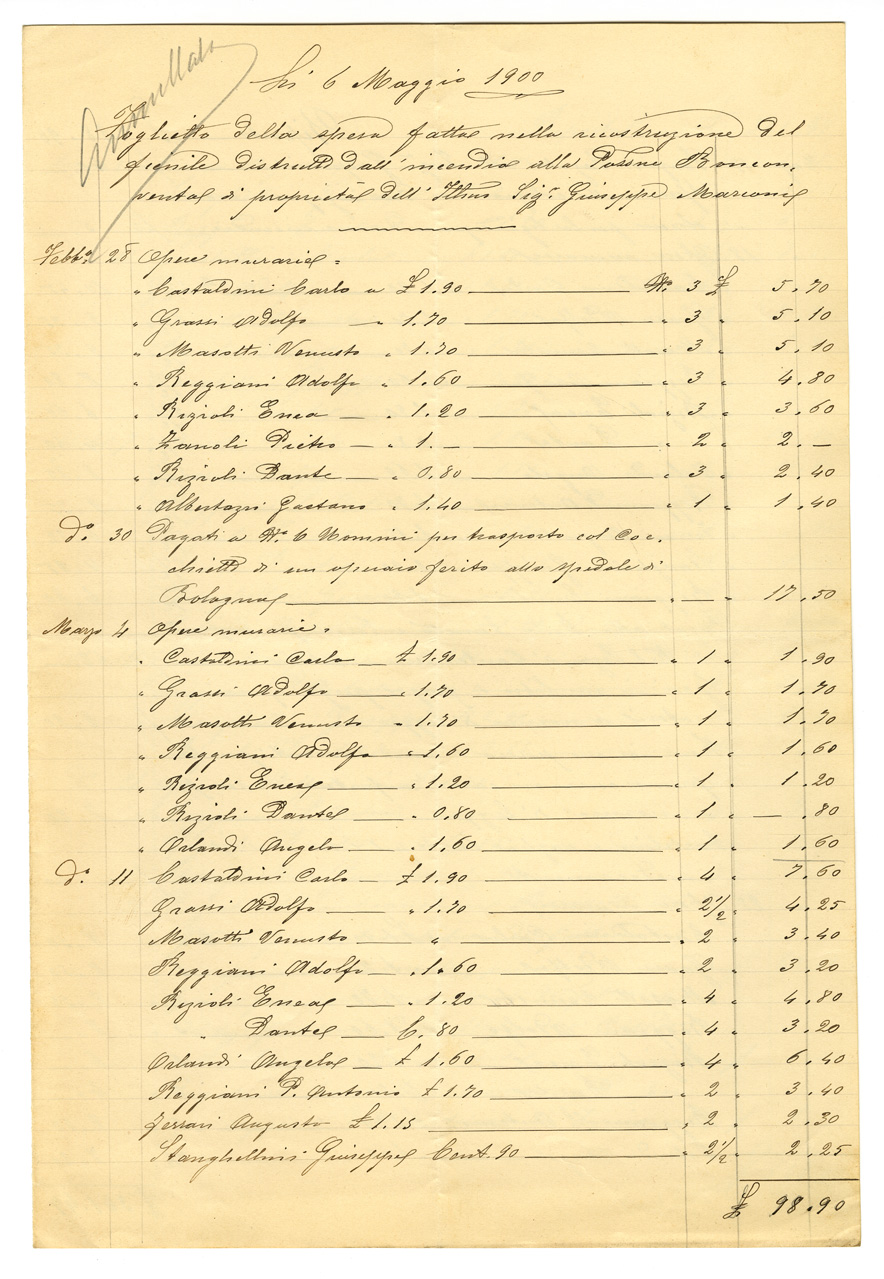 Annullato
Li 6 Maggio 1900
Foglietto della spesa fatta nella ricostruzione del
fienile distrutto dall'incendio alla Possne Boncon,
vento di proprietà dell' Illmo Sigr. Giuseppe Marconi
Febbo. 28 Opere murarie =
" Castaldini Carlo a £ 1.90 No. 3 £ 5.70
" Grassi Adolfo " 1.70 " 3 " 5.10
" Masotti Venusto " 1.70 " 3 " 5.10
" Reggiani Adolfo " 1.60 " 3 " 4.80
" Rizioli Enea " 1.20 " 3 " 3.60
" Zanoli Pietro " 1.- " 2 " 2.-
" Rizioli Dante " 0.80 " 3 " 2.40
" Albertazzi Gaetano " 1.40 " 1 " 1.40
do. 30 Pagati a No. 6 Uomini per trasporto col Coc,
chietto di un operaio ferito allo spedale di
Bologna " — " 17.50
Marzo 4 Opere murarie =
" Castaldini Carlo £ 1.90 " 1 " 1.90
" Grassi Adolfo " 1.70 " 1 " 1.70
" Masotti Venusto " 1.70 " 1 " 1.70
" Reggiani Adolfo " 1.60 " 1 " 1.60
" Rizioli Enea " 1.20 " 1 " 1.20
" Rizioli Dante " 0.80 " 1 " — .80
" Orlandi Angelo " 1.60 " 1 " 1.60
do. 11 Castaldini Carlo £ 1.90 " 4 " 7.60
Grassi Adolfo " 1.70 " 2 1/2 " 4.25
Masotti Venusto " " 2 " 3.40
Reggiani Adolfo " 1.60 " 2 " 3.20
Rizioli Enea " 1.20 " 4 " 4.80
" Dante C. 80 " 4 " 3.20
Orlandi Angelo £ 1.60 " 4 " 6.40
Reggiani P. Antonio £ 1.70 " 2 " 3.40
Ferrari Augusto £ 1.15 " 2 " 2.30
Stanghellini Giuseppe Cent. 90 " 2 1/2 " 2.25
£ 98.90